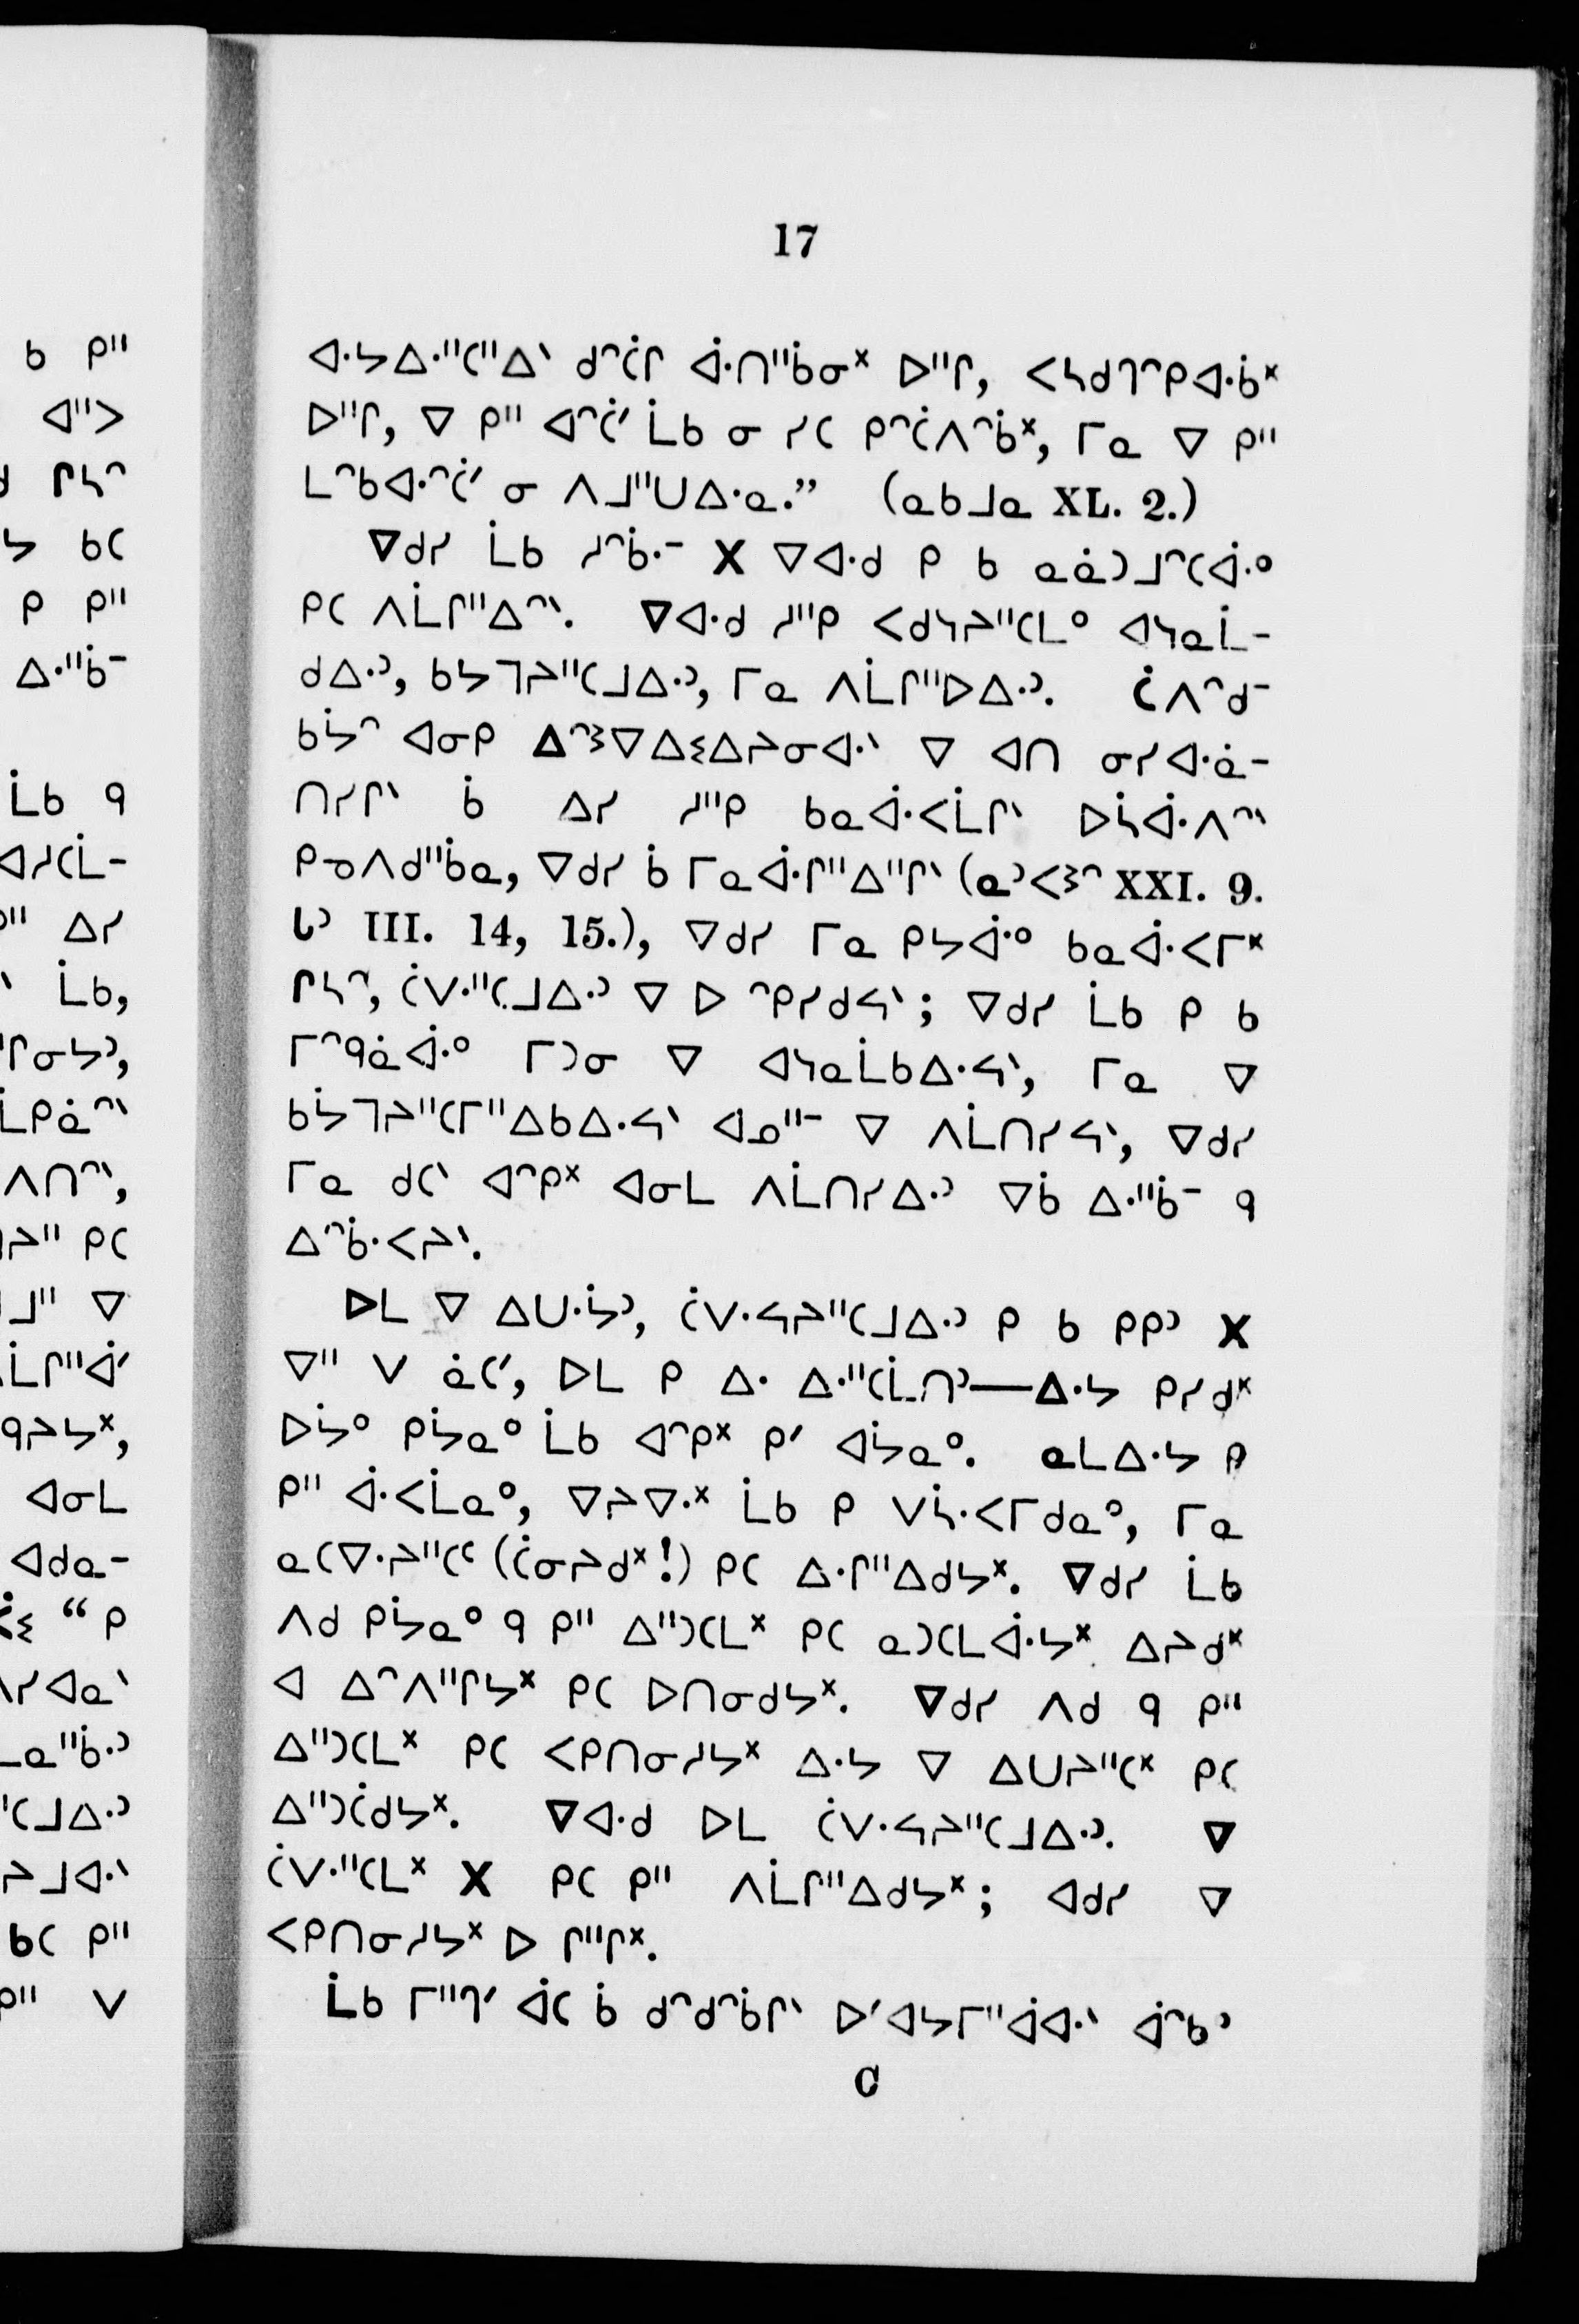 17
ᐊᐧᔭᐃᐧᐦᑕᐦᐃᐠ ᑯᐢᑖᒋ ᐋᐧᑎᐦᑳᓂᕽ ᐅᐦᒋ, ᐸᓴᑯᒉᐢᑭᐊᐧᑳᕽ
ᐅᐦᒋ, ᐁ ᑭᐦ ᐊᐢᑖᐟ ᒫᑲ ᓂ ᓯᑕ ᑭᐢᑖᐱᐢᑳᕽ, ᒥᓇ ᐁ ᑭᐦ
ᒪᐢᑲᐊᐧᐢᑖᐟ ᓂ ᐱᒧᐦᑌᐃᐧᓇ.” (ᓇᑲᒧᓇ XL. 2.)
ᐁᑯᓯ ᒫᑲ ᓱᐢᑳᐧᐨ X ᐁᐊᐧᑯ ᑭ ᑲ ᓇᓈᑐᒧᐢᑕᐋᐧᐤ
ᑭᑕ ᐱᒫᒋᐦᐃᐢᐠ. ᐁᐊᐧᑯ ᓱᐦᑭ ᐸᑯᓭᔨᐦᑕᒪᐤ ᐊᓭᓇᒫ-
ᑯᐃᐧᐣ, ᑲᔭᒣᔨᐦᑕᒧᐃᐧᐣ, ᒥᓇ ᐱᒫᒋᐦᐅᐃᐧᐣ. ᑖᐱᐢᑯᐨ
ᑲᔮᐢ ᐊᓂᑭ ᐃᐢᕒᐁᐃᓬᐃᔨᓂᐊᐧᐠ ᐁ ᐊᑎ ᓂᓯᐊᐧᓈ-
ᑎᓯᒋᐠ ᑳ ᐃᓯ ᓱᐦᑭ ᑲᓇᐋᐧᐸᒫᒋᐠ ᐅᓵᐋᐧᐱᐢᐠ
ᑭᓀᐱᑯᐦᑳᓇ, ᐁᑯᓯ ᑳ ᒥᓇᐋᐧᒋᐦᐃᐦᒋᐠ (ᓇᐣᐸᕒᐢ XXI. 9.
ᒐᐣ III. 14, 15.), ᐁᑯᓯ ᒥᓇ ᑭᔭᐋᐧᐤ ᑲᓇᐋᐧᐸᒥᕽ
ᒋᓴᐢ, ᑖᐯᐧᐦᑕᒧᐃᐧᐣ ᐁ ᐅ ᐢᑭᓯᑯᔦᐠ; ᐁᑯᓯ ᒫᑲ ᑭ ᑲ
ᒥᐢᑫᓈᐋᐧᐤ ᒥᑐᓂ ᐁ ᐊᓭᓇᒫᑲᐃᐧᔦᐠ, ᒥᓇ ᐁ
ᑲᔮᒣᔨᐦᑕᒥᐦᐃᑲᐃᐧᔦᐠ ᐊᓄᐦᐨ ᐁ ᐱᒫᑎᓯᔦᐠ, ᐁᑯᓯ
ᒥᓇ ᑯᑕᐠ ᐊᐢᑭᕽ ᐊᓂᒪ ᐱᒫᑎᓯᐃᐧᐣ ᐁᑳ ᐃᐧᐦᑳᐨ ᑫ
ᐃᐢᑳᐧᐸᔨᐠ.
ᐅᒪ ᐁ ᐃᑌᐧᔮᐣ, ᑖᐯᐧᔦᔨᐦᑕᒧᐃᐧᐣ ᑭ ᑲ ᑭᑭᐣ X
ᐁᐦ ᐯ ᓈᑕᐟ, ᐅᒪ ᑭ ᐃᐧ ᐃᐧᐦᑕᒫᑎᐣ—ᐃᐧᔭ ᑭᓯᑯᕽ
ᐅᔮᐤ ᑭᔮᓇᐤ ᒫᑲ ᐊᐢᑭᕽ ᑭᐟ ᐊᔮᓇᐤ. ᓇᒪᐃᐧᔭ ᑭ
ᑭᐦ ᐋᐧᐸᒫᓇᐤ, ᐁᔨᐁᐧᕽ ᒫᑲ ᑭ ᐯᓵᐧᐸᒥᑯᓇᐤ, ᒥᓇ
ᓇᑕᐁᐧᔨᐦᑕᒼ (ᑖᓂᔨᑯᕽ!) ᑭᑕ ᐃᐧᒋᐦᐃᑯᔭᕽ. ᐁᑯᓯ ᒫᑲ
ᐱᑯ ᑭᔮᓇᐤ ᑫ ᑭᐦ ᐃᐦᑐᑕᒪᕽ ᑭᑕ ᓇᑐᑕᒪᐋᐧᔭᕽ ᐃᔨᑯᕽ
ᐊ ᐃᐢᐱᐦᒋᔭᕽ ᑭᑕ ᐅᑎᓂᑯᔭᕽ. ᐁᑯᓯ ᐱᑯ ᑫ ᑭᐦ
ᐃᐦᑐᑕᒪᕽ ᑭᑕ ᐸᑭᑎᓂᓱᔭᕽ ᐃᐧᔭ ᐁ ᐃᑌᔨᐦᑕᕽ ᑭᑕ
ᐃᐦᑐᑖᑯᔭᕽ. ᐁᐊᐧᑯ ᐅᒪ ᑖᐯᐧᔦᔨᐦᑕᒧᐃᐧᐣ. ᐁ
ᑖᐯᐧᐦᑕᒪᕽ X ᑭᑕ ᑭᐦ ᐱᒫᒋᐦᐃᑯᔭᕽ; ᐊᑯᓯ ᐁ
ᐸᑭᑎᓂᓱᔭᕽ ᐅ ᒋᐦᒋᕽ.
ᒫᑲ ᒥᐦᒉᐟ ᐋᑕ ᑳ ᑯᐢᑯᐢᑳᒋᐠ ᐅᐟᐊᔭᒥᐦᐋᐊᐧᐠ ᐋᐢᑲᐣ
C